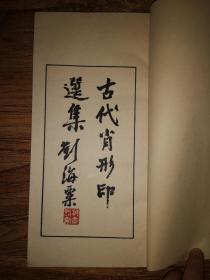 古代肖形印
選集 劉海粟